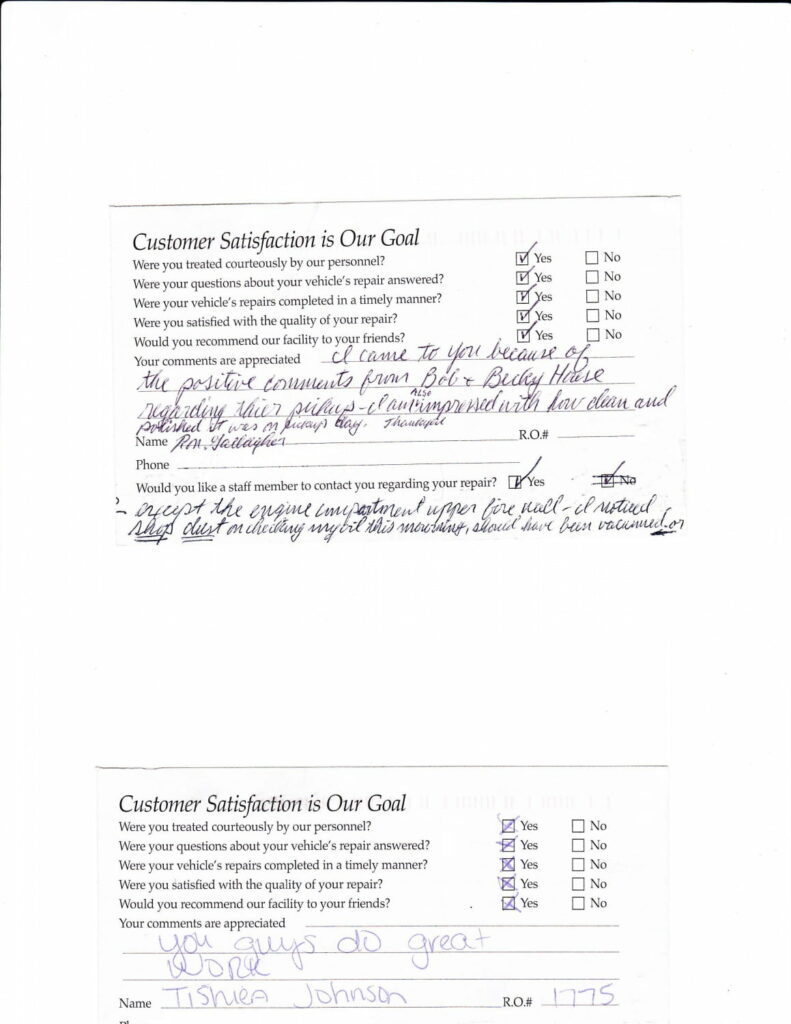 Customer Satisfaction is Our Goal
Were you treated courteously by our personnel? Yes No
Were your questions about your vehicle's repair answered? Yes No
Were your vehicle's repairs completed in a timely manner? Yes No
Were you satisfied with the quality of your repair? Yes No
Would you recommend our facility to your friends? Yes No
Your comments are appreciated I came to you because of
the positive comments from Bob & Becky House
regarding thier pickup - I am ALSO impressed with how clean and
polished it was on pickup day. Thankyou
Name Ron Gallagher R.O.#
Phone
Would you like a staff member to contact you regarding your repair? Yes No
- except the engine compartment upper fire wall - I noticed
shop dust on checking my oil this morning, should have been vacumned or
Customer Satisfaction is Our Goal
Were you treated courteously by our personnel? Yes No
Were your questions about your vehicle's repair answered? Yes No
Were your vehicle's repairs completed in a timely manner? Yes No
Were you satisfied with the quality of your repair? Yes No
Would you recommend our facility to your friends? Yes No
Your comments are appreciated
you guys do great
WORK
Name Tishiea Johnson R.O.# 1775